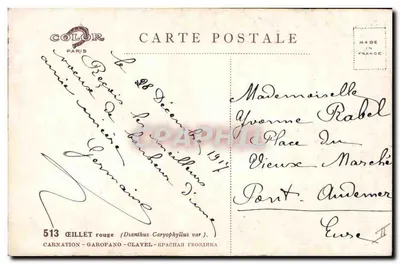 COLOR
PARIS
CARTE POSTALE
MADE
IN
FRANCE
le 28 Décembre 1917
Reçois les meilleurs
voeux de bonheur d'une
amie sincère
Germaine
Mademoiselle
Yvonne Rabel
Place du
Vieux Marché
Pont-Audemer
Eure
513 ŒILLET rouge (Dianthus Caryophyllus var).
CARNATION - GAROFANO - CLAVEL - КРАСНАЯ ГВОЗДИКА